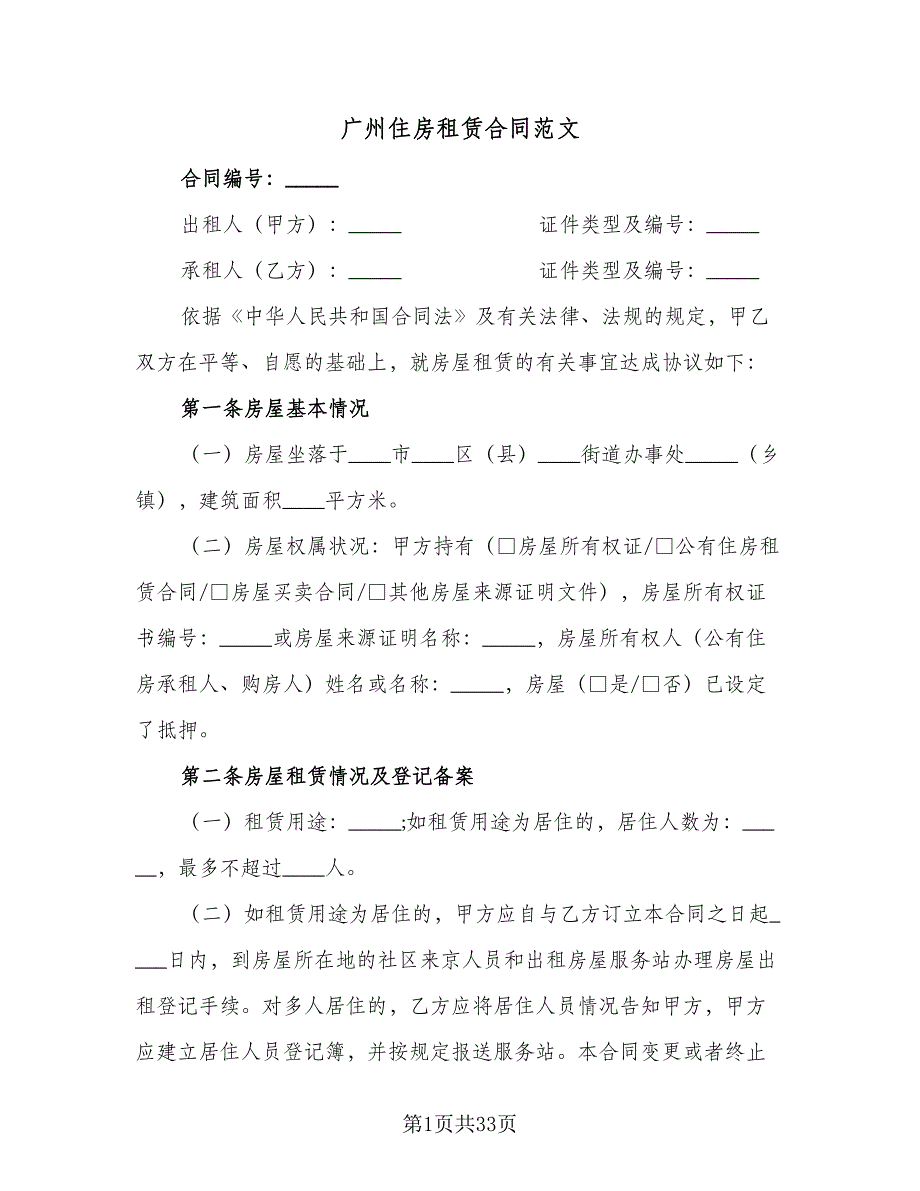 广州住房租赁合同范文
合同编号：_____
出租人（甲方）：_____ 证件类型及编号：_____
承租人（乙方）：_____ 证件类型及编号：_____
依据《中华人民共和国合同法》及有关法律、法规的规定，甲乙
双方在平等、自愿的基础上，就房屋租赁的有关事宜达成协议如下：
第一条房屋基本情况
（一）房屋坐落于____市____区（县）____街道办事处_____（乡
镇），建筑面积____平方米。
（二）房屋权属状况：甲方持有（□房屋所有权证/□公有住房租
赁合同/□房屋买卖合同/□其他房屋来源证明文件），房屋所有权证
书编号：_____或房屋来源证明名称：_____，房屋所有权人（公有住
房承租人、购房人）姓名或名称：_____，房屋（□是/□否）已设定
了抵押。
第二条房屋租赁情况及登记备案
（一）租赁用途：_____;如租赁用途为居住的，居住人数为：___
__，最多不超过____人。
（二）如租赁用途为居住的，甲方应自与乙方订立本合同之日起_
___日内，到房屋所在地的社区来京人员和出租房屋服务站办理房屋出
租登记手续。对多人居住的，乙方应将居住人员情况告知甲方，甲方
应建立居住人员登记簿，并按规定报送服务站。本合同变更或者终止
第1页共33页